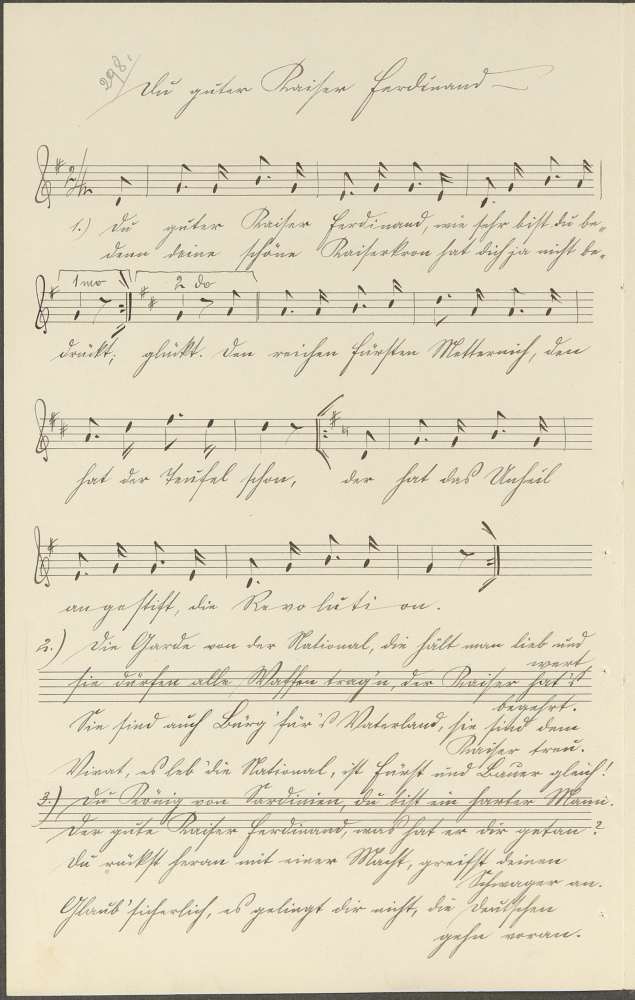 298.
Du guter Kaiser Ferdinand
1.) Du guter Kaiser Ferdinand, wie sehr bist du be=
denn deine schöne Kaiserkron hat dich ja nicht be=
1mo 2 do
drückt; glückt. Den reichen Fürsten Metternich, den
hat der Teufel schon, der hat das Unheil
angestift, die Revoluti on.
2.) Die Garde von der National, die hält man lieb und
wert,
sie dürfen alle Waffen trag'n, der Kaiser hat's
begehrt.
Sie sind auch Bürg' für's Vaterland, sie sind dem
Kaiser treu.
Vivat, es leb' die National, ist Fürst und Bauer gleich!
3.) Du König von Sardinien, du bist ein harter Mann.
Der gute Kaiser Ferdinand, was hat er dir getan?
Du rückst heran mit einer Macht, greifst deinen
Schwager an.
Glaub' sicherlich, es gelingt dir nicht, die Deutschen
gehn voran.